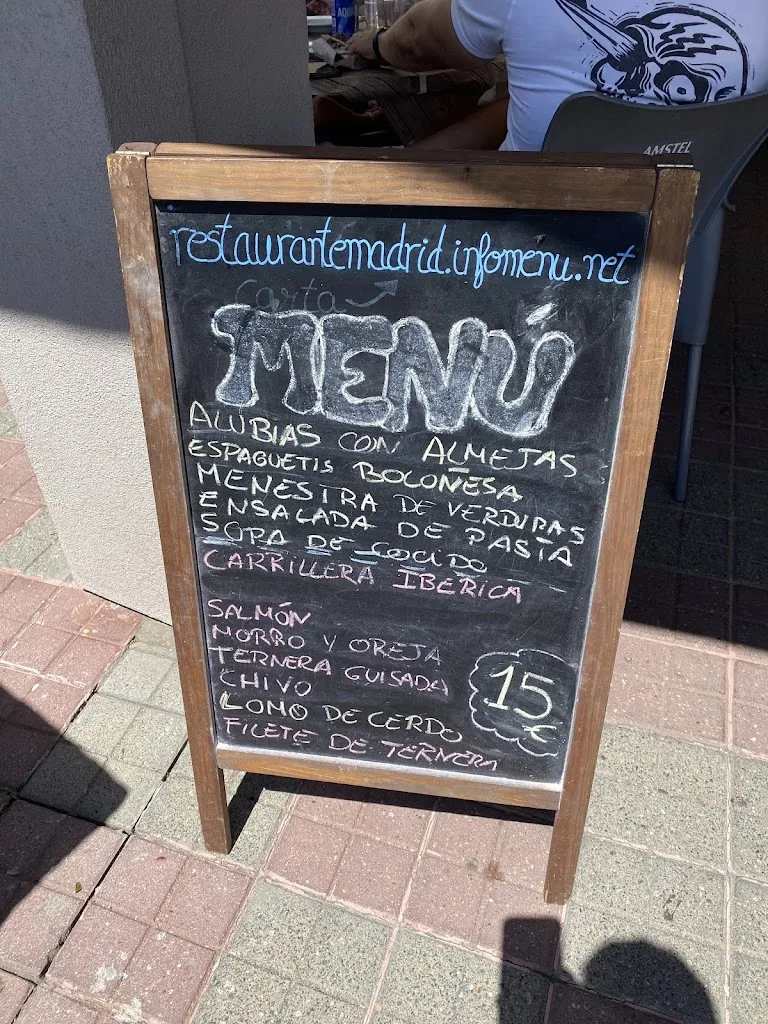 AQUA
AMSTEL
restaurantemadrid.infomenu.net
carta
MENÚ
ALUBIAS CON ALMEJAS
ESPAGUETIS BOLOÑESA
MENESTRA DE VERDURAS
ENSALADA DE PASTA
SOPA DE COCIDO
CARRILLERA IBERICA
SALMÓN
MORRO Y OREJA
TERNERA GUISADA
CHIVO
LOMO DE CERDO
FILETE DE TERNERA
15 €